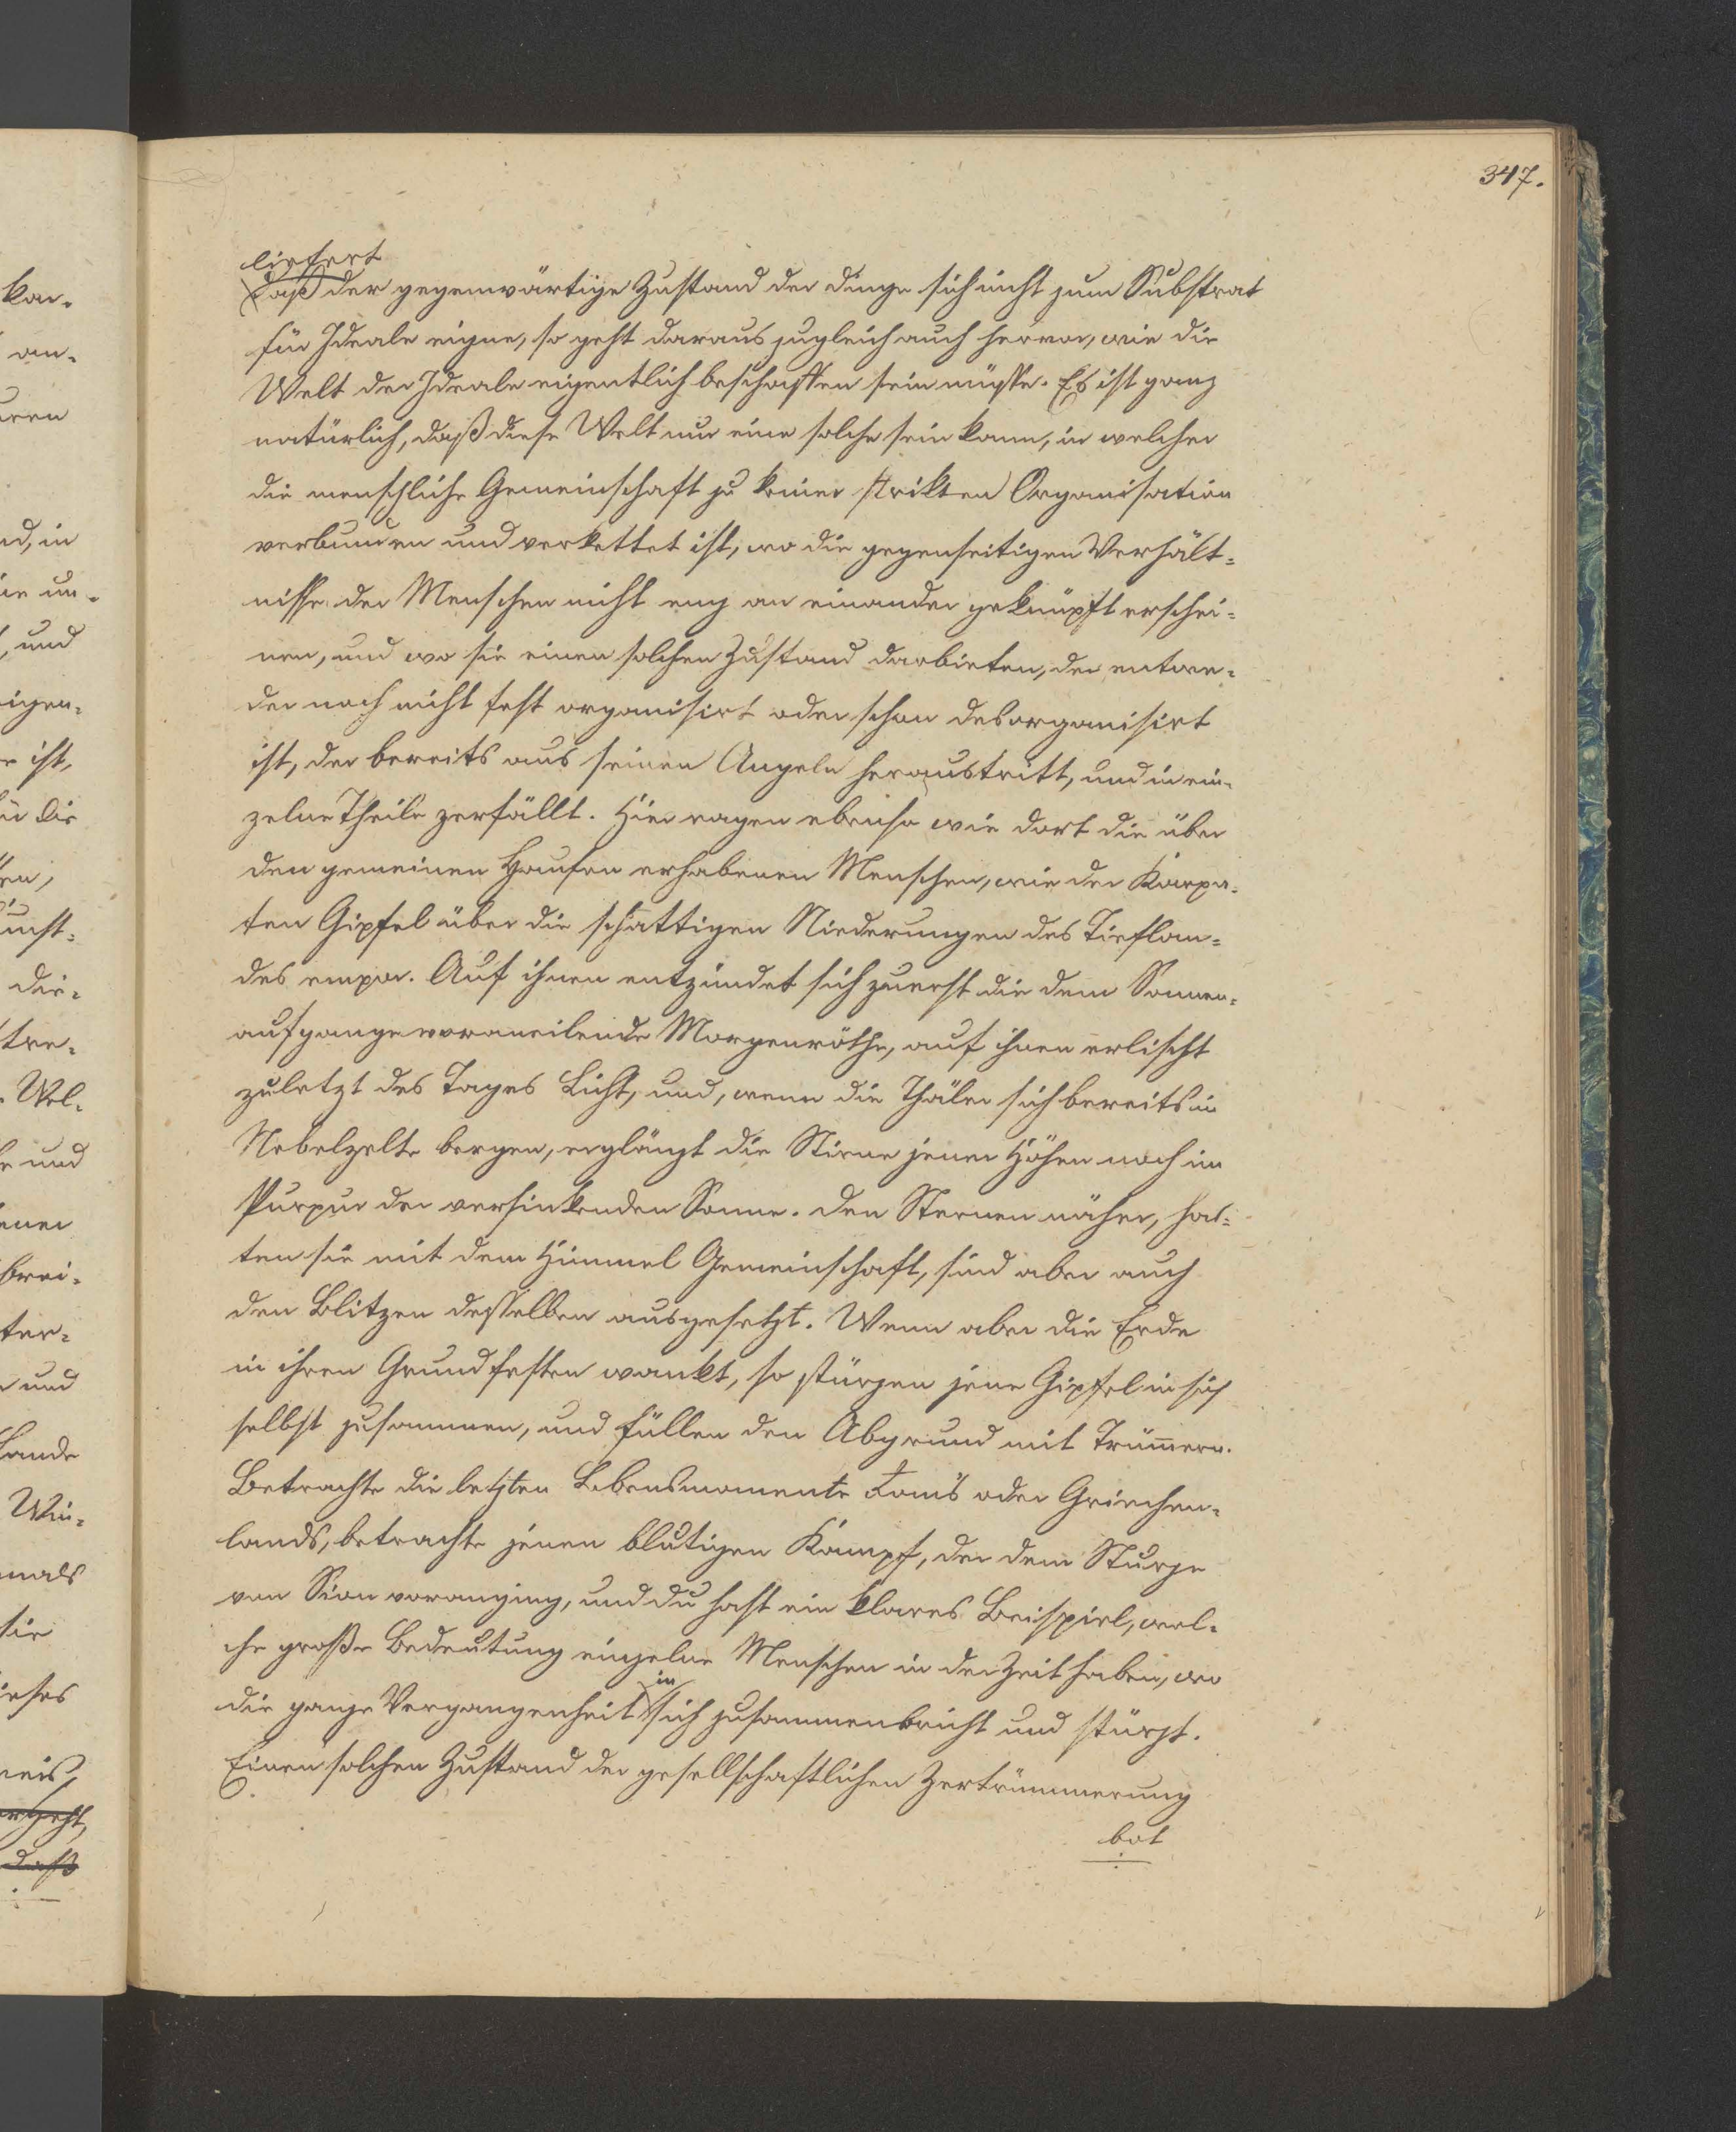 347.
liefert
daß der gegenwärtige Zustand der Dinge sich nicht zum Substrat
für Ideale eigne, so geht daraus zugleich auch hervor, wie die
Welt der Ideale eigentlich beschaffen sein müsse. Es ist ganz
natürlich, daß diese Welt nur eine solche sein kann, in welcher
die menschliche Gemeinschaft zu keiner strikten Organisation
verbunden und verkettet ist, wo die gegenseitigen Verhält-
nisse der Menschen nicht eng an einander geknüpft erschei-
nen, und wo sie einen solchen Zustand darbieten, der entwe-
der noch nicht fest organisirt oder schon desorganisirt
ist, der bereits aus seinen Angeln heraustritt, und in ein-
zelne Theile zerfällt. Hier ragen ebenso wie dort die über
den gemeinen Haufen erhabenen Menschen, wie der Karpa-
ten Gipfel über die schattigen Niederungen des Tieflan-
des empor. Auf ihnen entzündet sich zuerst die dem Sonnen-
aufgange voraneilende Morgenröthe, auf ihnen erlischt
zuletzt des Tages Licht, und, wenn die Thäler sich bereits in
Nebelzelte bergen, erglänzt die Stirne jener Höhen noch im
Purpur der versinkenden Sonne. Den Sternen näher, hal-
ten sie mit dem Himmel Gemeinschaft, sind aber auch
den Blitzen desselben ausgesetzt. Wenn aber die Erde
in ihren Grundfesten wankt, so stürzen jene Gipfel in sich
selbst zusammen, und füllen den Abgrund mit Trümmern.
Betrachte die letzten Lebensmomente Rom's oder Griechen-
lands, betrachte jenen blutigen Kampf, der dem Sturze
von Sion voranging, und du hast ein klares Beispiel, wel-
che große Bedeutung einzelne Menschen in der Zeit haben, wo
die ganze Vergangenheit in sich zusammenbricht und stürzt.
Einen solchen Zustand der gesellschaftlichen Zertrümmerung
bot